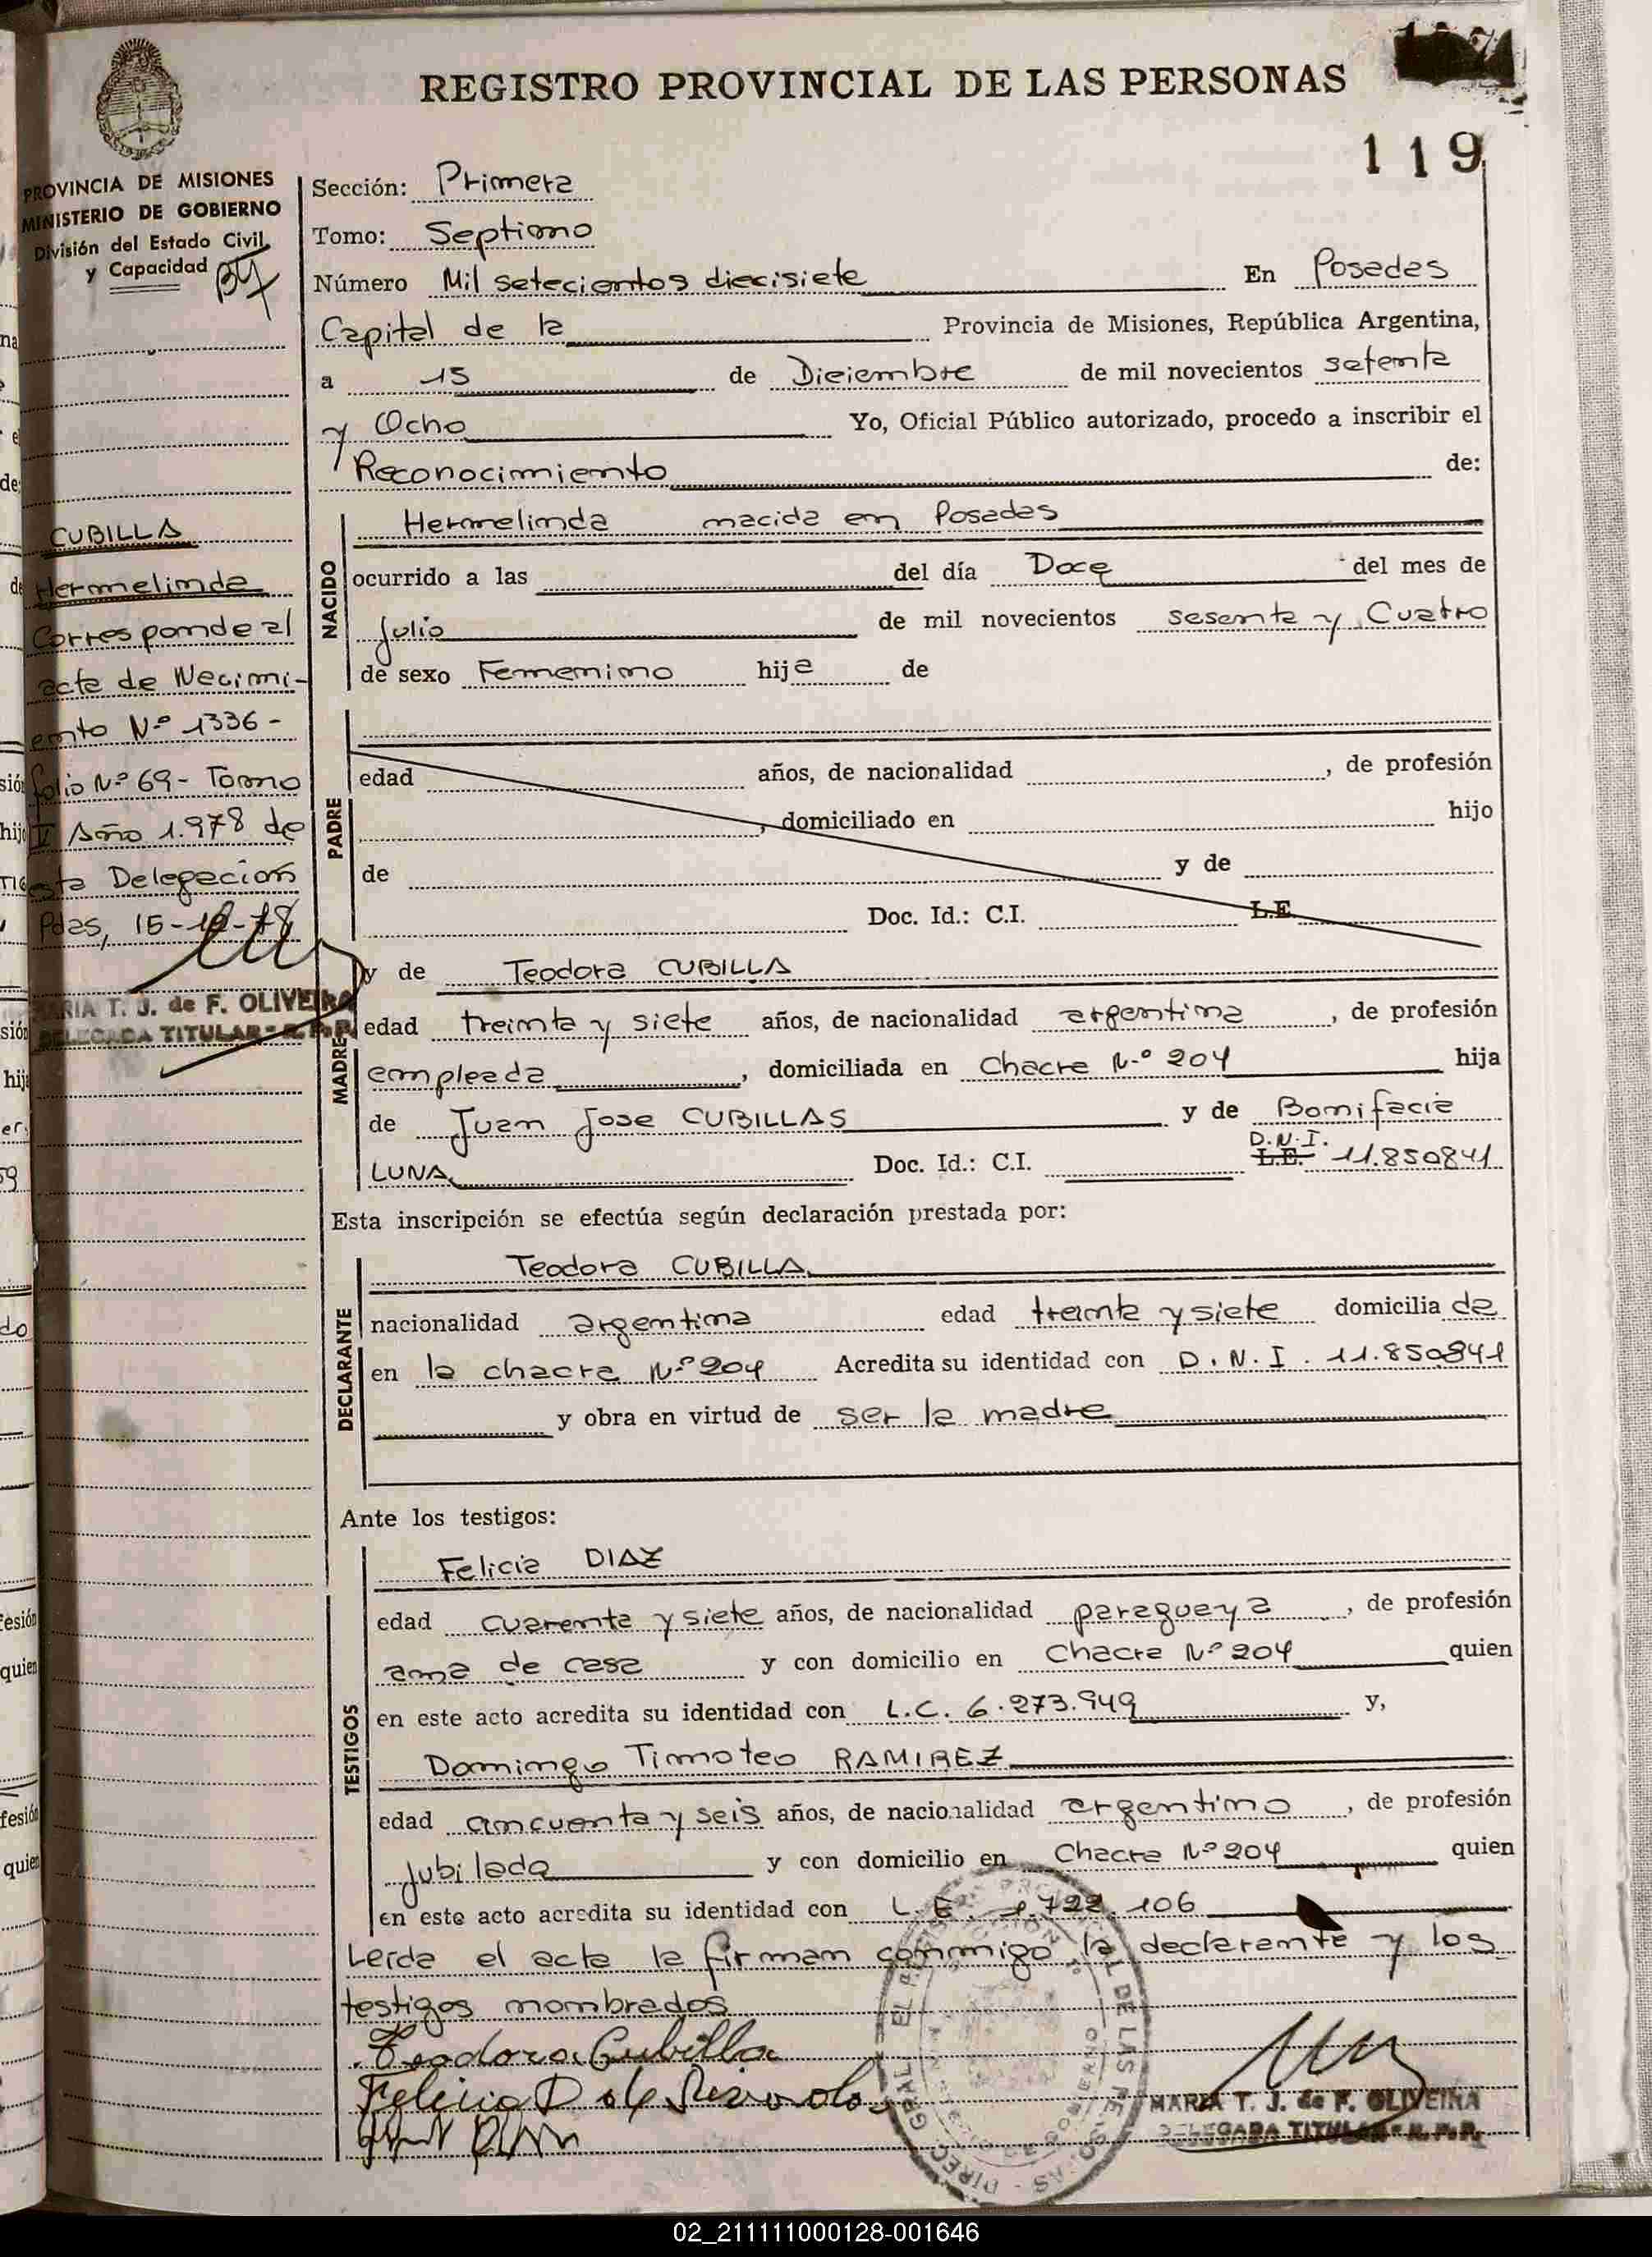 REGISTRO PROVINCIAL DE LAS PERSONAS
119
PROVINCIA DE MISIONES
MINISTERIO DE GOBIERNO
División del Estado Civil
y Capacidad
Sección: Primera
Tomo: Septimo
Número Mil setecientos diecisiete En Posadas
Capital de la Provincia de Misiones, República Argentina,
a 15 de Diciembre de mil novecientos setenta
y Ocho Yo, Oficial Público autorizado, procedo a inscribir el
Reconocimiento de:
CUBILLA
Hermelinda
Corresponde al
acta de Nacimi-
ento Nº 1336-
folio Nº 69- Tomo
Año 1.978 de
esta Delegación
Pdas, 15-12-78
MARIA T. J. de F. OLIVEIRA
DELEGADA TITULAR - R. P. P.
NACIDO
Hermelinda nacida en Posadas
ocurrido a las del día Doce del mes de
Julio de mil novecientos sesenta y Cuatro
de sexo Femenino hija de
PADRE
edad años, de nacionalidad , de profesión
, domiciliado en hijo
de y de
Doc. Id.: C.I. L.E.
MADRE
y de Teodora CUBILLA
edad treinta y siete años, de nacionalidad argentina , de profesión
empleada , domiciliada en Chacra Nº 204 hija
de Juan Jose CUBILLAS y de Bonifacia
D.N.I.
LUNA Doc. Id.: C.I. L.E. 11.850841
Esta inscripción se efectúa según declaración prestada por:
DECLARANTE
Teodora CUBILLA
nacionalidad argentina edad treinta y siete domicilia da
en la chacra Nº 204 Acredita su identidad con D.N.I. 11.850841
y obra en virtud de ser la madre
Ante los testigos:
TESTIGOS
Felicia DIAZ
edad cuarenta y siete años, de nacionalidad paraguaya , de profesión
ama de casa y con domicilio en Chacra Nº 204 quien
en este acto acredita su identidad con L.C. 6.273.949 y,
Domingo Timoteo RAMIREZ
edad cincuenta y seis años, de nacionalidad argentino , de profesión
Jubilado y con domicilio en Chacra Nº 204 quien
en este acto acredita su identidad con L.E. 1.722.106
Leída el acta la firman conmigo la declarante y los
testigos nombrados
Teodora Cubilla
Felicia D de
MARIA T. J. de F. OLIVEIRA
DELEGADA TITULAR - R. P. P.
02_211111000128-001646